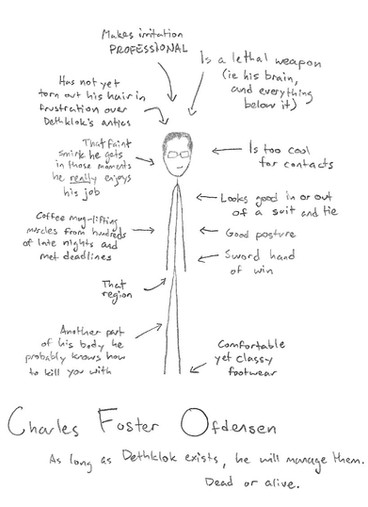 Makes irritation
PROFESSIONAL
Is a lethal weapon
(ie his brain,
and everything
below it)
Has not yet
torn out his hair in
frustration over
Dethklok's antics
That faint
smirk he gets
in those moments
he really enjoys
his job
Is too cool
for contacts
Looks good in or out
of a suit and tie
Coffee mug-lifting
muscles from hundreds
of late nights and
met deadlines
Good posture
Sword hand
of win
That
region
Another part
of his body he
probably knows how
to kill you with
Comfortable
yet classy
footwear
Charles Foster Ofdensen
As long as Dethklok exists, he will manage them.
Dead or alive.